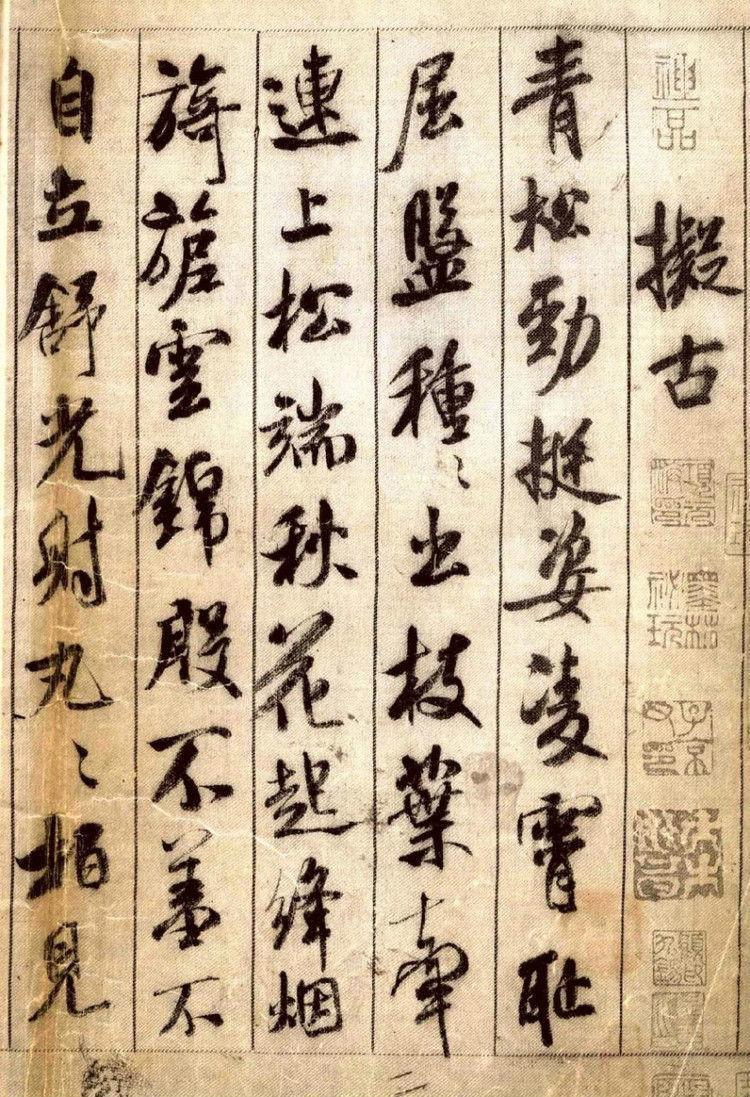 神品
擬古
墨林祕玩
青松勁挺姿凌霄恥
屈盤種〻出枝葉牽
連上松端秋花起絳烟
旖旎雲錦殷不羞不
自立舒光射丸〻柏見
二